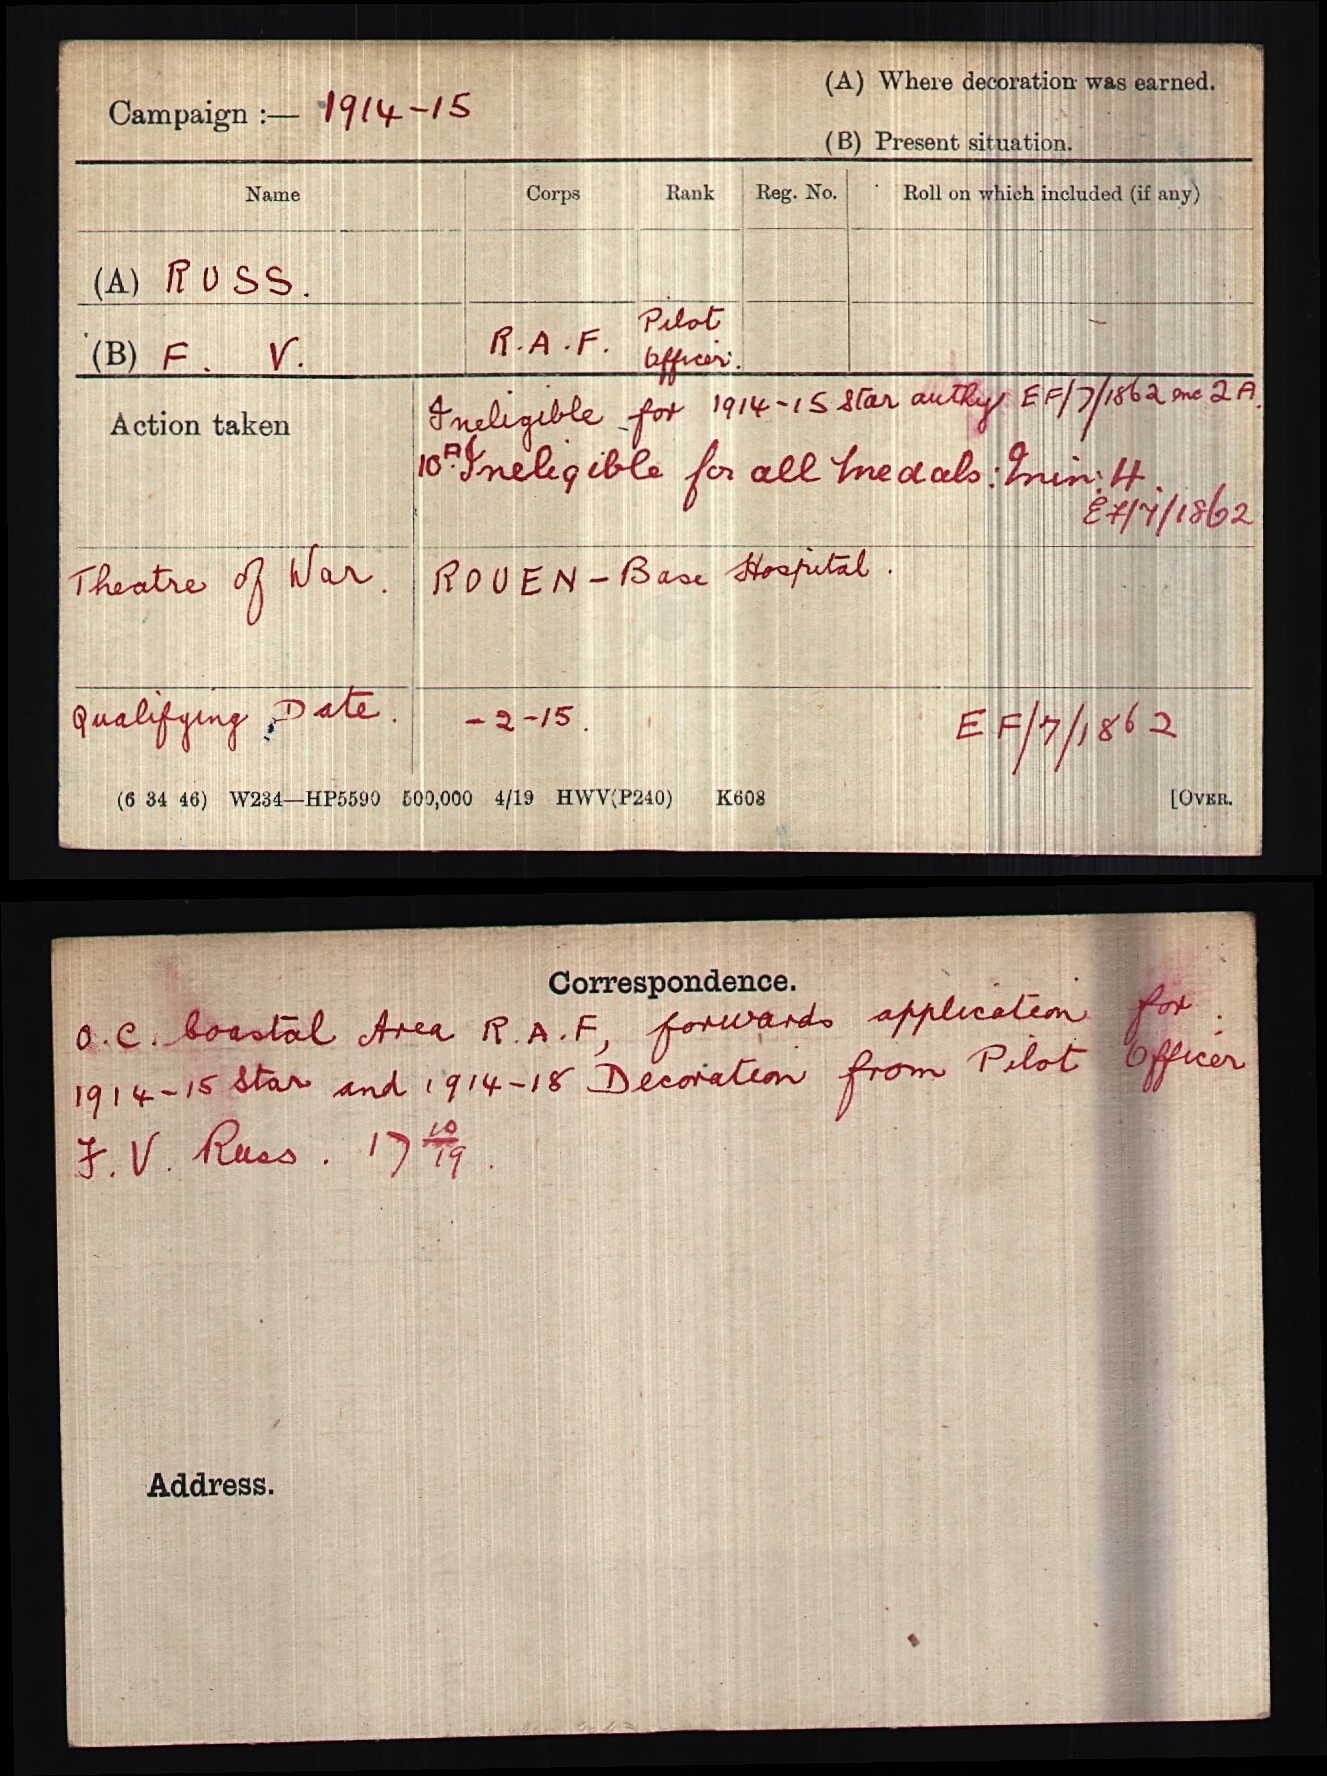 Campaign :— 1914-15
(A) Where decoration was earned.
(B) Present situation.
Name Corps Rank Reg. No. Roll on which included (if any)
(A) RUSS.
(B) F. V. R.A.F. Pilot Officer.
Action taken
Ineligible for 1914-15 Star authy EF/7/1862 enc 2A.
Ineligible for all Medals: Min: 4.
EF/7/1862
Theatre of War. ROUEN - Base Hospital.
Qualifying Date. -2-15. EF/7/1862
(6 34 46) W234—HP5590 500,000 4/19 HWV(P240) K608 [OVER.
Correspondence.
O.C. Coastal Area R.A.F, forwards application for
1914-15 Star and 1914-18 Decoration from Pilot Officer
F. V. Russ. 17 10/19.
Address.